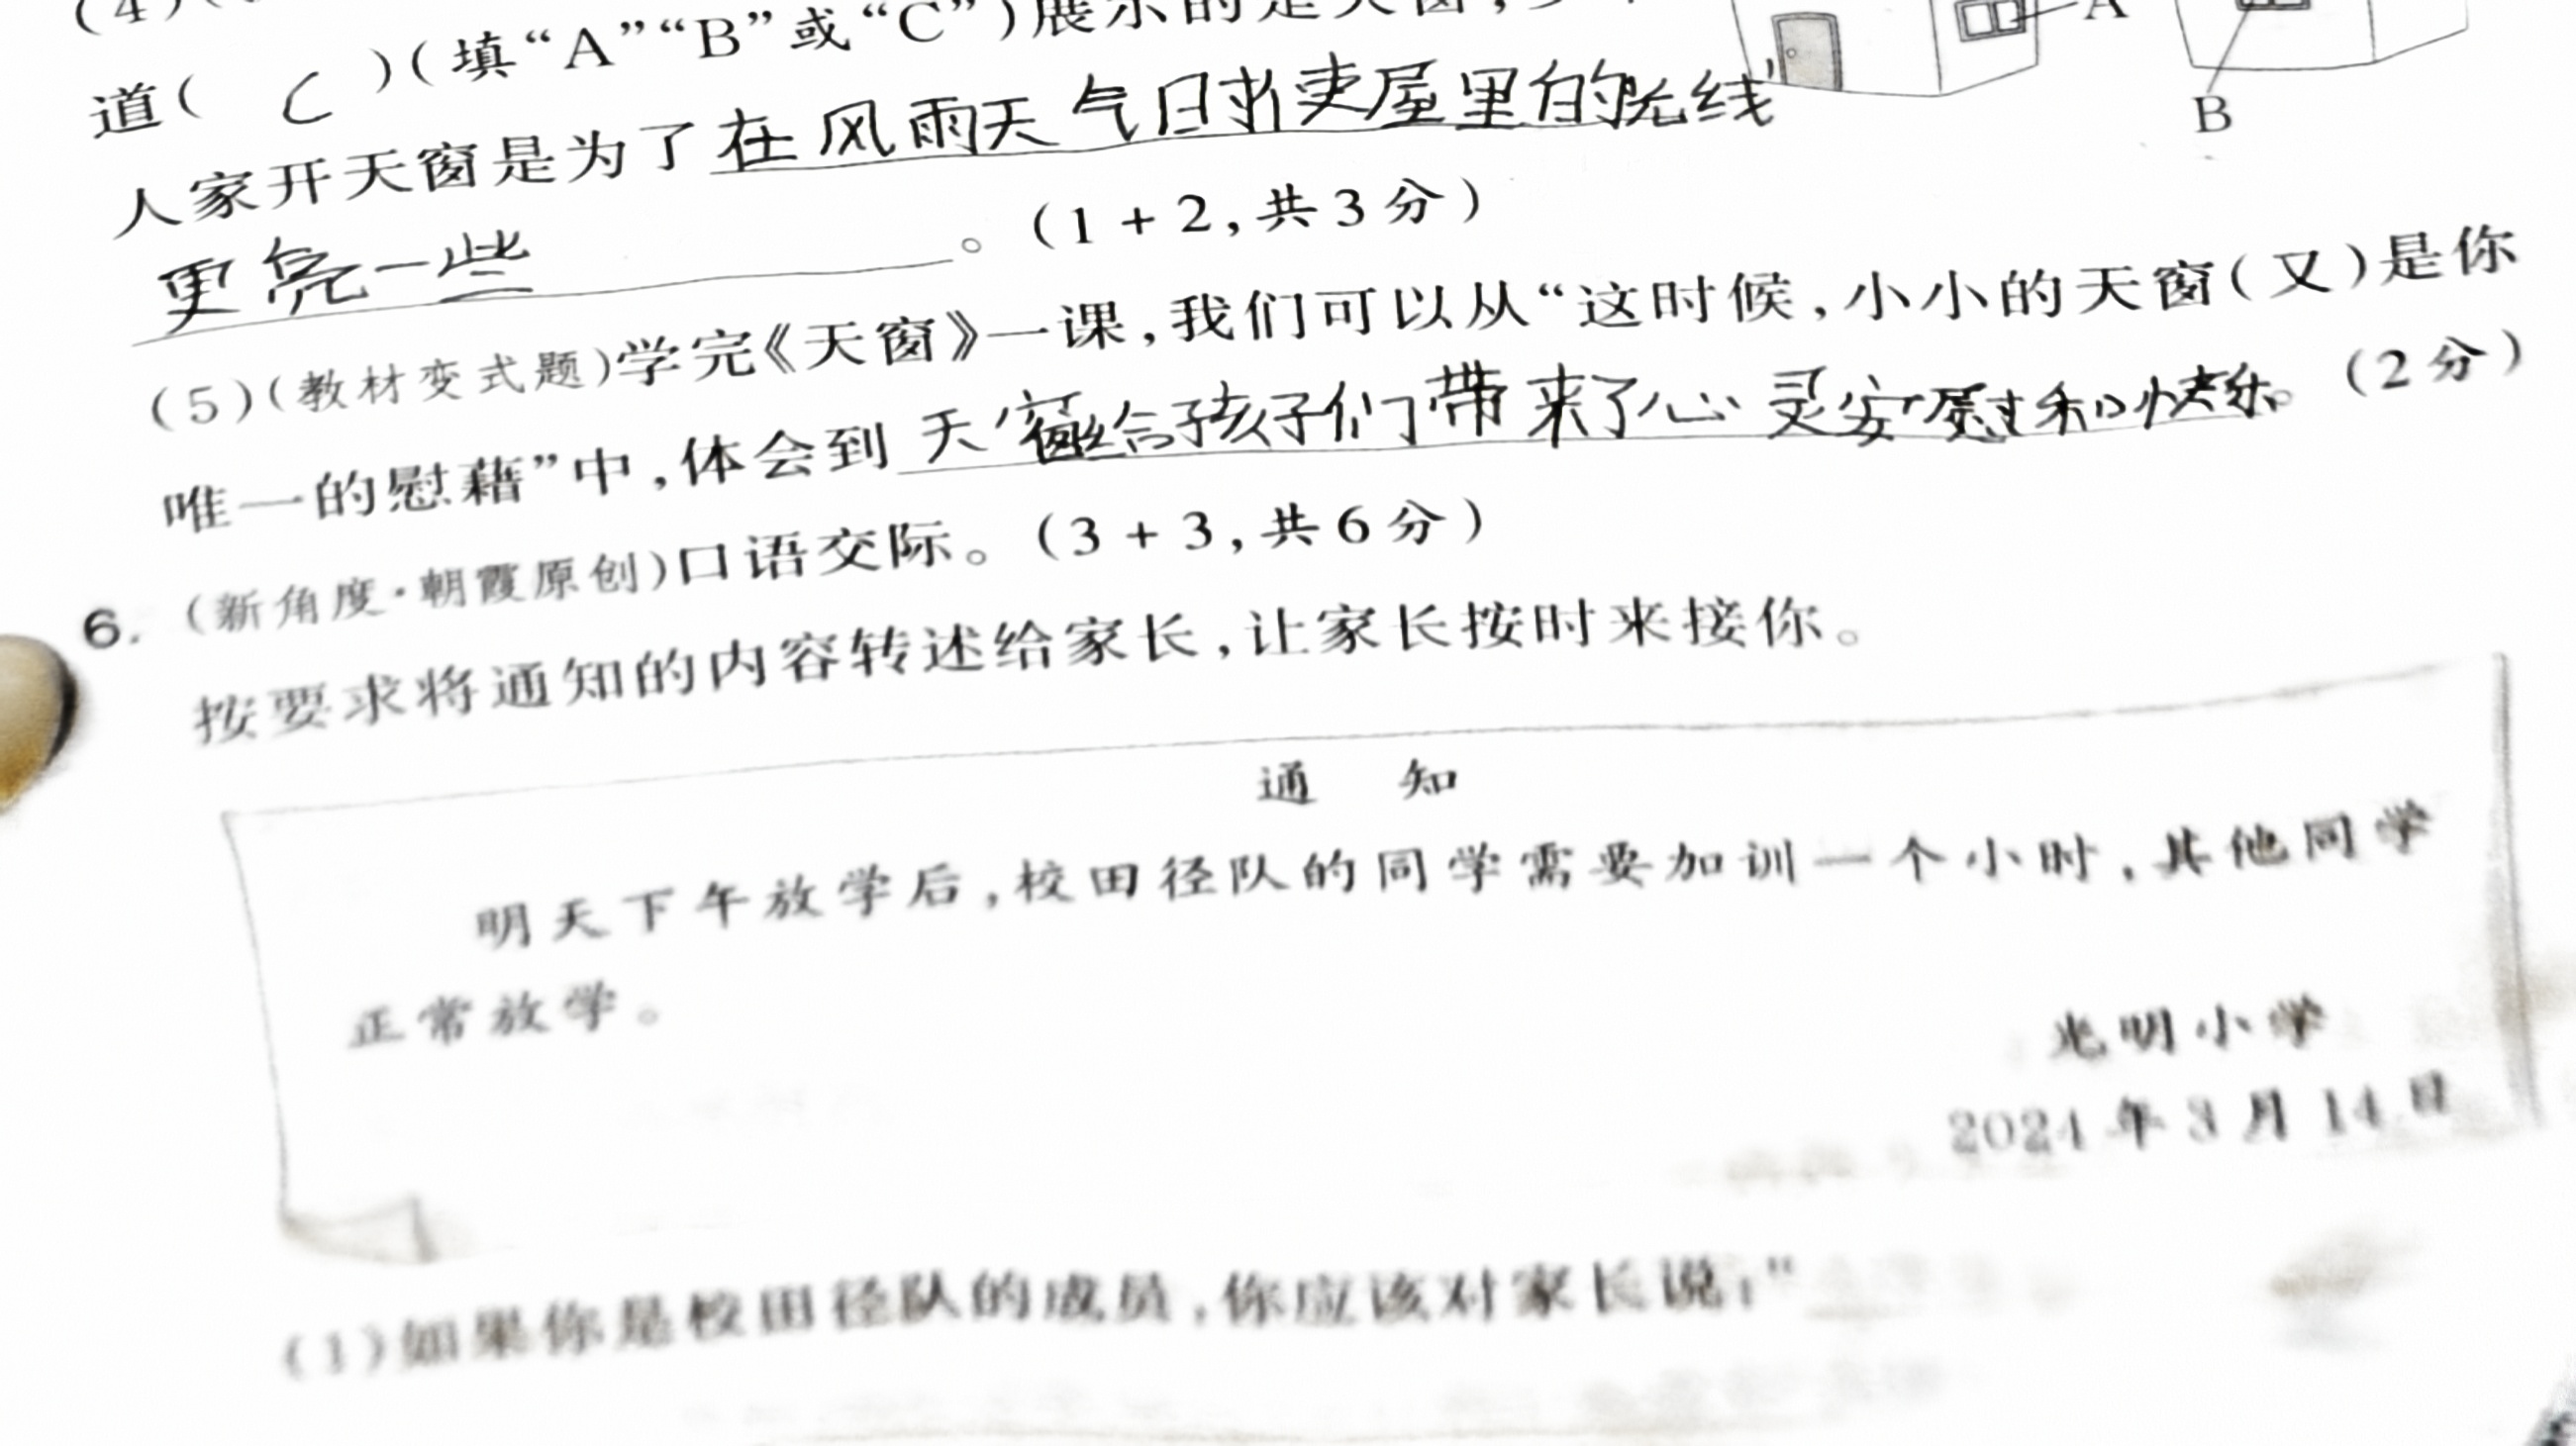 (4)(
道( C )(填“A”“B”或“C”)展示的是天窗,
A
B
人家开天窗是为了在风雨天气日才使屋里的光线
更亮一些。(1+2,共3分)
(5)(教材变式题)学完《天窗》一课,我们可以从“这时候,小小的天窗(又)是你
唯一的慰藉”中,体会到天窗给孩子们带来了心灵安慰和快乐。(2分)
6.(新角度·朝霞原创)口语交际。(3+3,共6分)
按要求将通知的内容转述给家长,让家长按时来接你。
通 知
明天下午放学后,校田径队的同学需要加训一个小时,其他同学
正常放学。
光明小学
2024年3月14日
(1)如果你是校田径队的成员,你应该对家长说:“